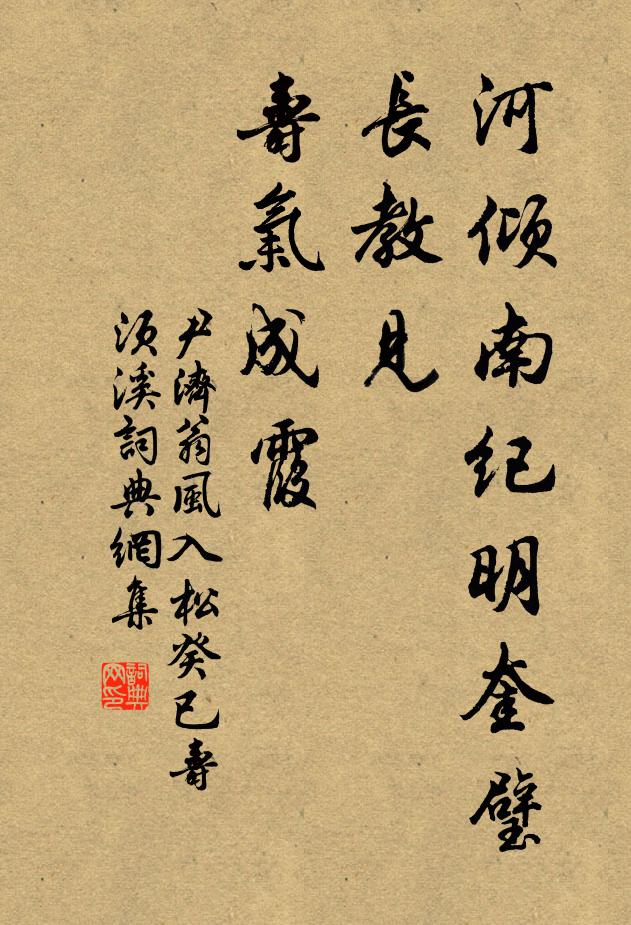 河傾南紀明奎璧
長教見
壽氣成霞
尹濟翁風入松癸巳壽
須溪詞典網集
詞典网印